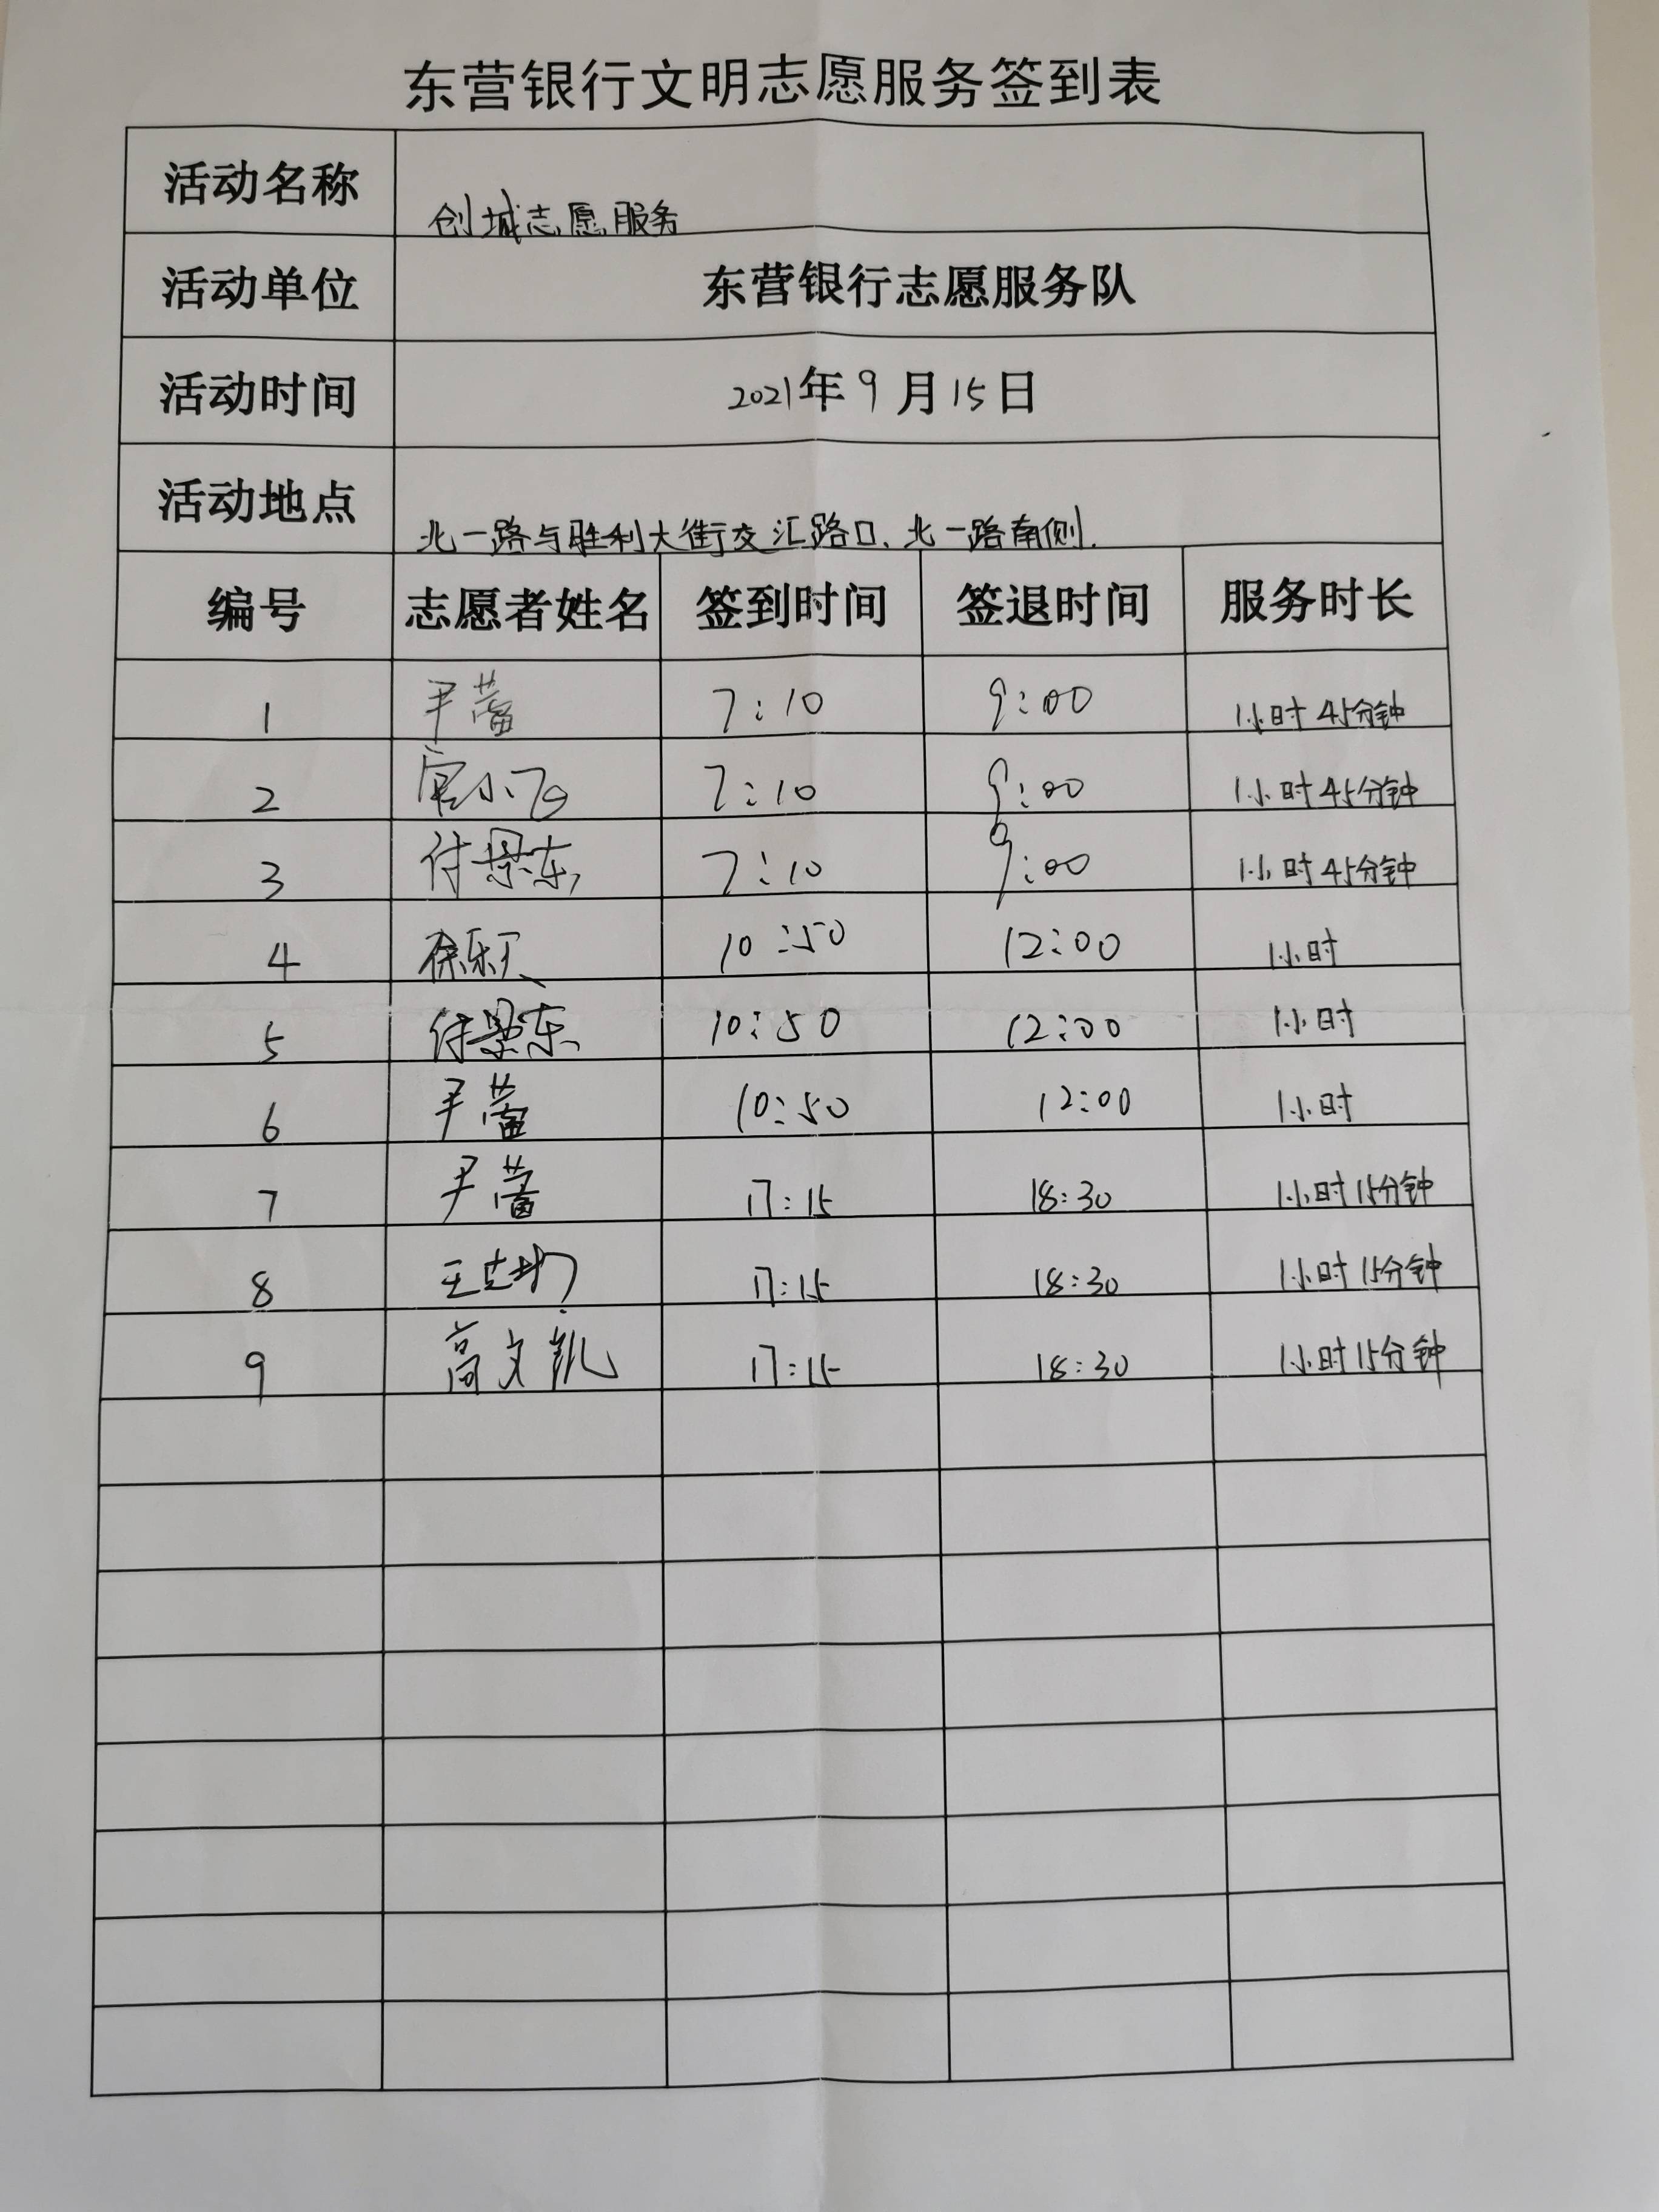 东营银行文明志愿服务签到表
活动名称 创城志愿服务
活动单位 东营银行志愿服务队
活动时间 2021年9月15日
活动地点 北一路与胜利大街交汇路口、北一路南侧.
编号 志愿者姓名 签到时间 签退时间 服务时长
1 尹蕾 7:10 9:00 1小时45分钟
2 官小飞 7:10 9:00 1小时45分钟
3 付景东 7:10 9:00 1小时45分钟
4 徐乐天 10:50 12:00 1小时
5 付景东 10:50 12:00 1小时
6 尹蕾 10:50 12:00 1小时
7 尹蕾 17:15 18:30 1小时15分钟
8 王 17:15 18:30 1小时15分钟
9 高文凯 17:15 18:30 1小时15分钟